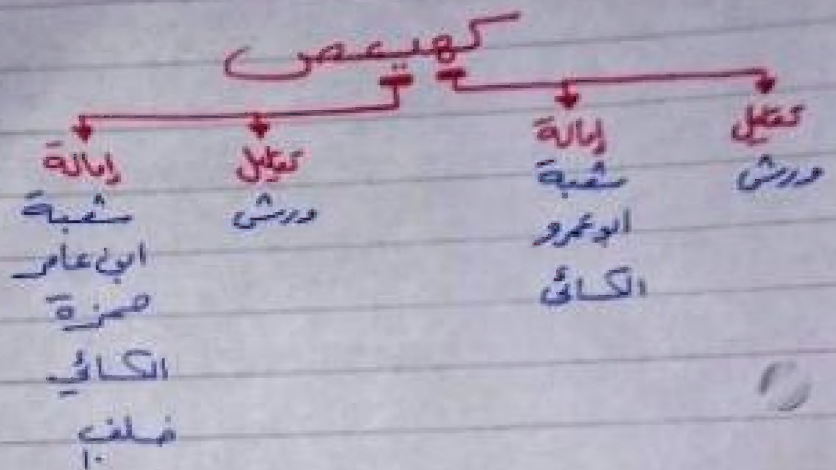 كهيعص
تقليل
ورش
إمالة
شعبة
ابو عمرو
الكسائي
تقليل
ورش
إمالة
شعبة
ابن عامر
حمزة
الكسائي
خلف
١٠